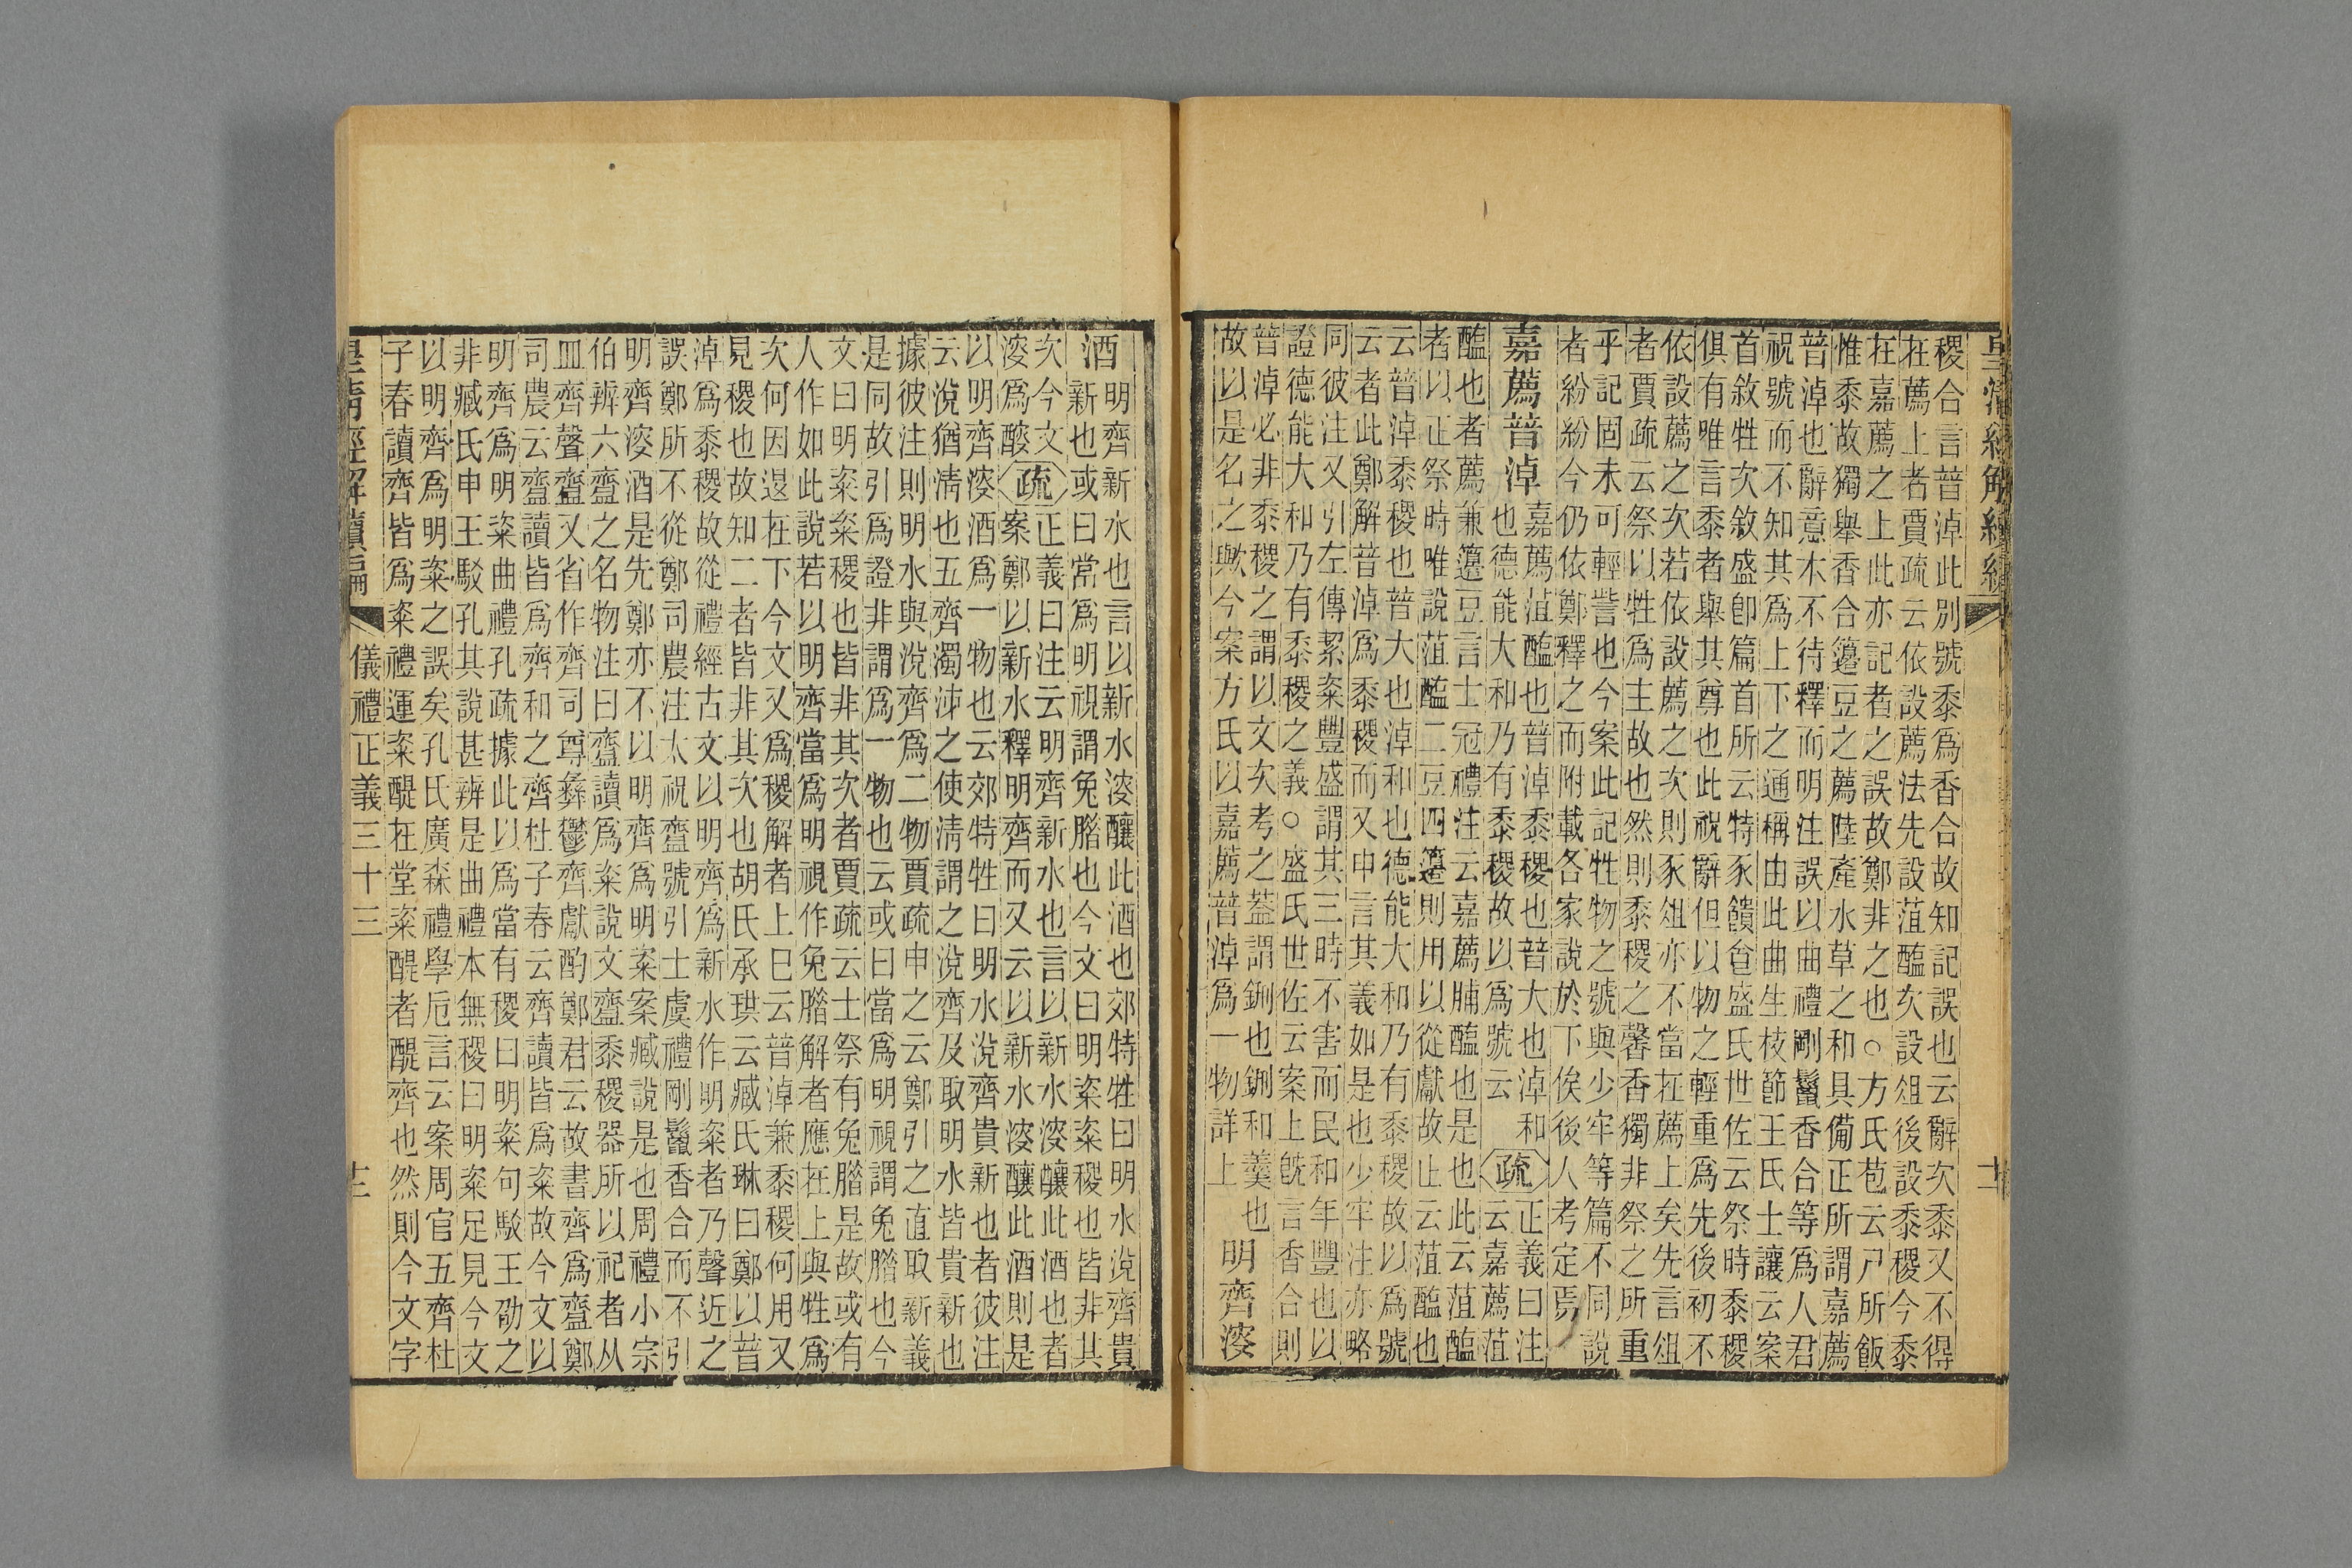 皇清經解續編
稷合言普淖此別號黍爲香合故知記誤也云辭次黍又不得
在薦上者賈疏云依設薦法先設菹醢次設俎後設黍稷今黍
在嘉薦之上此亦記者之誤故鄭非之也○方氏苞云尸所飯
惟黍故獨舉香合籩豆之薦陸產水草之和具備正所謂嘉薦
普淖也辭意本不待釋而明注誤以曲禮剛鬣香合等爲人君
祝號而不知其爲上下之通稱由此曲生枝節王氏士讓云案
首敘牲次敘盛卽篇首所云特豕饋食盛氏世佐云祭時黍稷
俱有唯言黍者舉其尊也此祝辭但以物之輕重爲先後初不
依設薦之次若依設薦之次則豕俎亦不當在薦上矣先言俎
者賈疏云祭以牲爲主故也然則黍稷之馨香獨非祭之所重
乎記固未可輕訾也今案此記牲物之號與少牢等篇不同說
者紛紛今仍依鄭釋之而附載各家說於下俟後人考定焉
嘉薦普淖
嘉薦菹醢也普淖黍稷也普大也淖和
也德能大和乃有黍稷故以爲號云
疏
正義曰注
云嘉薦菹
醢也者薦兼籩豆言士冠禮注云嘉薦脯醢也是也此云菹醢
者以正祭時唯說菹醢二豆四籩則用以從獻故止云菹醢也
云普淖黍稷也普大也淖和也德能大和乃有黍稷故以爲號
云者此鄭解普淖爲黍稷而又申言其義如是也少牢注亦略
同彼注又引左傳絜粢豐盛謂其三時不害而民和年豐也以
證德能大和乃有黍稷之義○盛氏世佐云案上旣言香合則
普淖必非黍稷之謂以文次考之葢謂鉶也鉶和羹也
故以是名之與今案方氏以嘉薦普淖爲一物詳上
明齊溲
酒
明齊新水也言以新水溲釀此酒也郊特牲曰明水涗齊貴
新也或曰當爲明視謂兔腊也今文曰明粢粢稷也皆非其
次今文
溲爲醙
疏
正義曰注云明齊新水也言以新水溲釀此酒也者
案鄭以新水釋明齊而又云以新水溲釀此酒則是
以明齊溲酒爲一物也云郊特牲曰明水涗齊貴新也者彼注
云涗猶清也五齊濁泲之使清謂之涗齊及取明水皆貴新也
據彼注則明水與涗齊爲二物賈疏申之云鄭引之直取新義
是同故引爲證非謂爲一物也云或曰當爲明視謂兔腊也今
文曰明粢粢稷也皆非其次者賈疏云士祭有兔腊是故或有
人作如此說若以明齊當爲明視作兔腊解者應在上與牲爲
次何因退在下今文又爲稷解者上巳云普淖兼黍稷何用又
見稷也故知二者皆非其次也胡氏承珙云臧氏琳曰鄭以普
淖爲黍稷故從禮經古文以明齊爲新水作明粢者乃聲近之
誤鄭所不從鄭司農注太祝齍號引士虞禮剛鬣香合而不引
明齊溲酒是先鄭亦不以明齊爲明粢案臧說是也周禮小宗
伯辨六齍之名物注曰齍讀爲粢說文齍黍稷器所以祀者从
皿齊聲齍又省作齊司尊彝鬱齊獻酌鄭君云故書齊爲齍鄭
司農云齍讀皆爲齊和之齊杜子春云齊讀皆爲粢故今文以
明齊爲明粢曲禮孔疏據此以爲當有稷曰明粢句駁王劭之
非臧氏申王駁孔其說甚辨是曲禮本無稷曰明粢足見今文
以明齊爲明粢之誤矣孔氏廣森禮學卮言云案周官五齊杜
子春讀齊皆爲粢禮運粢醍在堂粢醍者醍齊也然則今文字
皇清經解續編
儀禮正義三十三